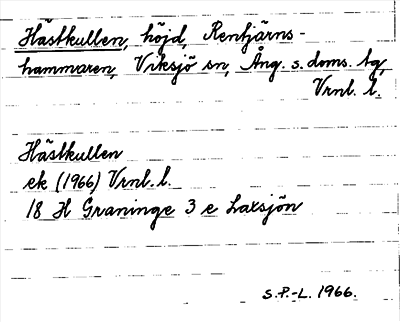 Hästkullen, höjd, Rentjärns-
hammaren, Viksjö sn, Ång. s. doms. tg,
Vrnl. l.
Hästkullen
ek (1966) Vrnl. l.
18 H Graninge 3 e Laxsjön
S.P.-L. 1966.